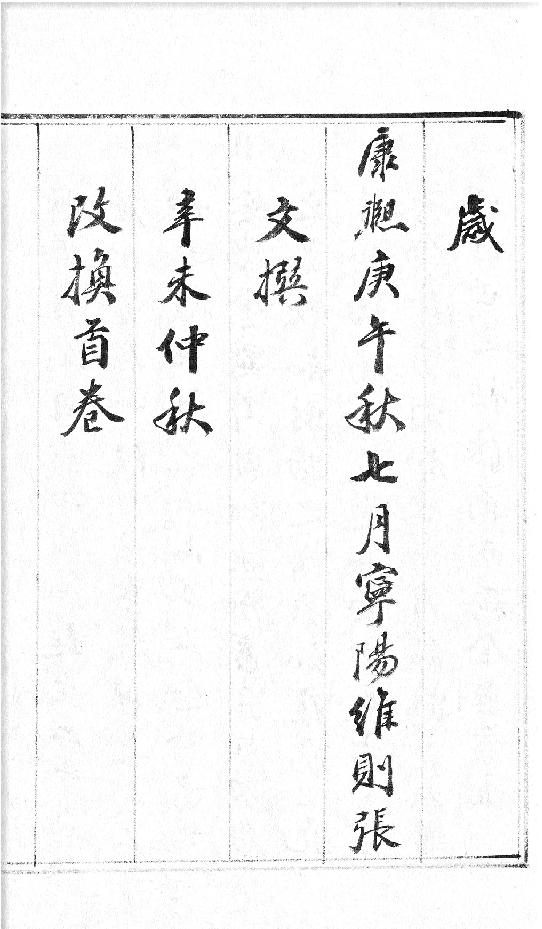 歲
康熈庚午秋七月寧陽維則張
文撰
辛未仲秋
改換首卷